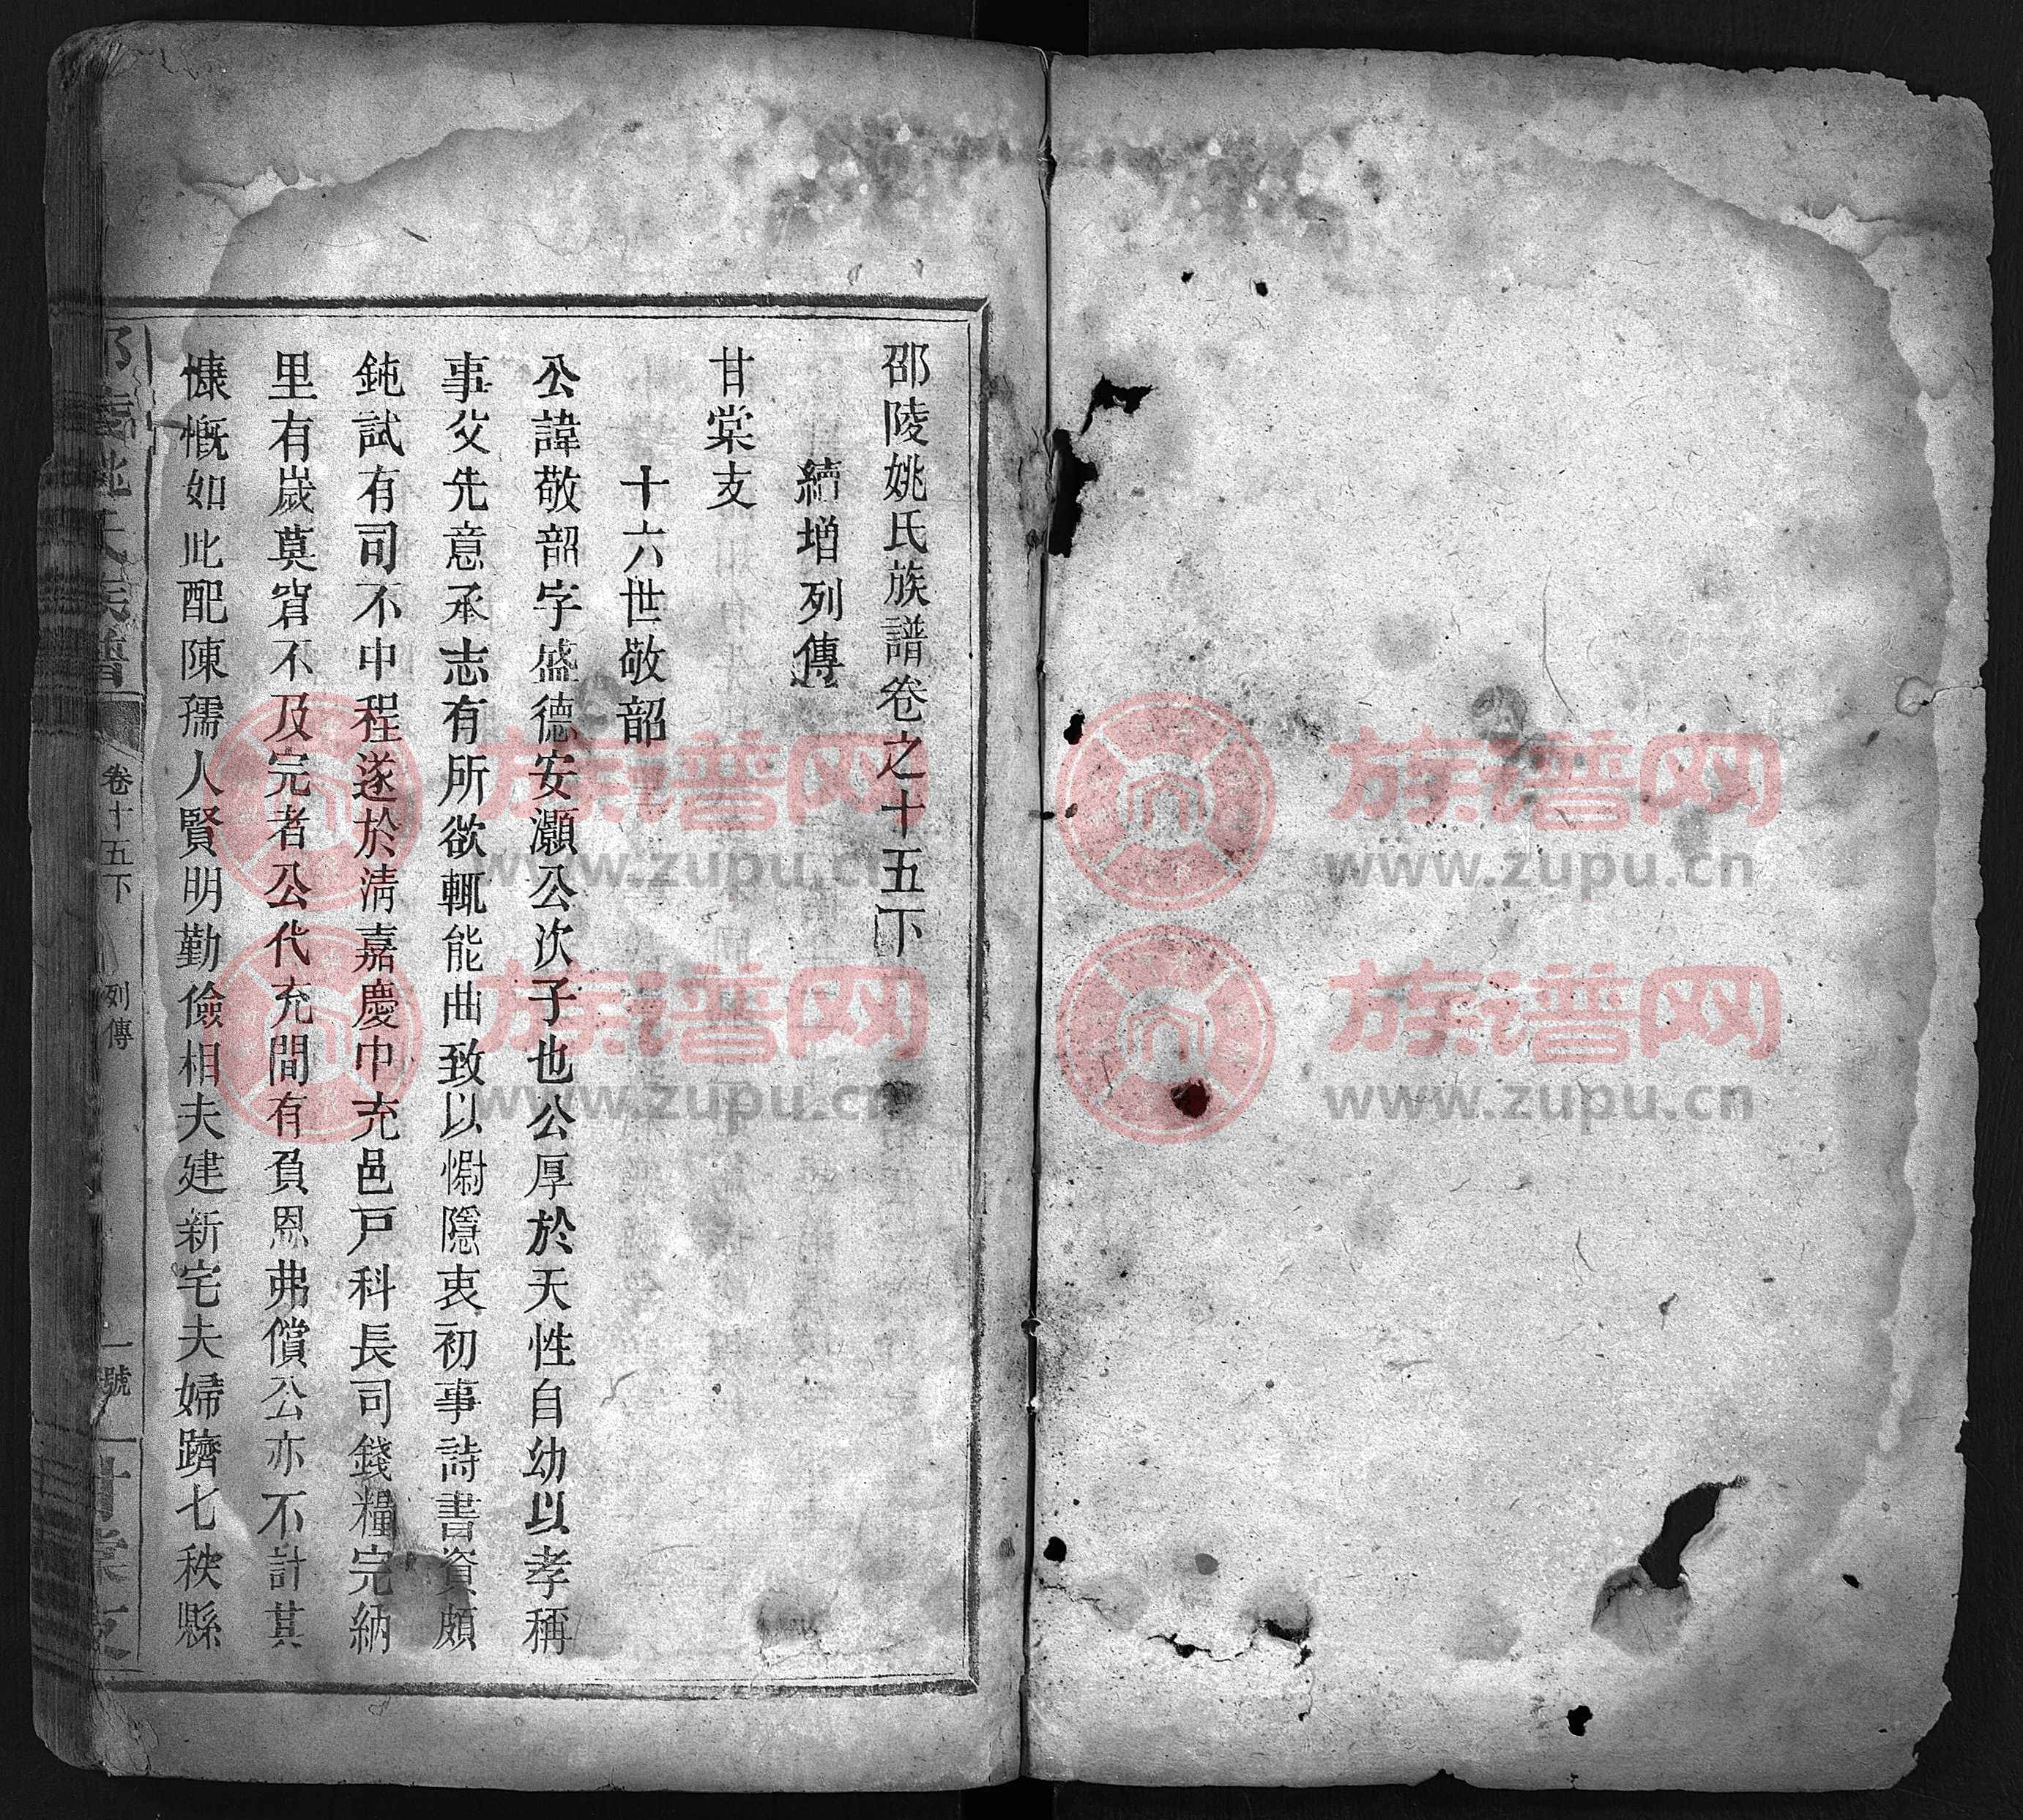 邵陵姚氏族譜卷之十五下
續增列傳
甘棠支
十六世敬韶
公諱敬韶字盛德安灝公次子也公厚於天性自幼以孝稱
事父先意承志有所欲輒能曲致以慰隱衷初事詩書資頗
鈍試有司不中程遂於清嘉慶中充邑戸科長司錢糧完納
里有歲莫窘不及完者公代充間有負恩弗償公亦不計其
慷慨如此配陳孺人賢明勤儉相夫建新宅夫婦躋七秩縣
邵陵姚氏族譜
卷十五下
列傳
一號
甘棠支
族谱网
www.zupu.cn
族谱网
www.zupu.cn
族谱网
www.zupu.cn
族谱网
www.zupu.cn